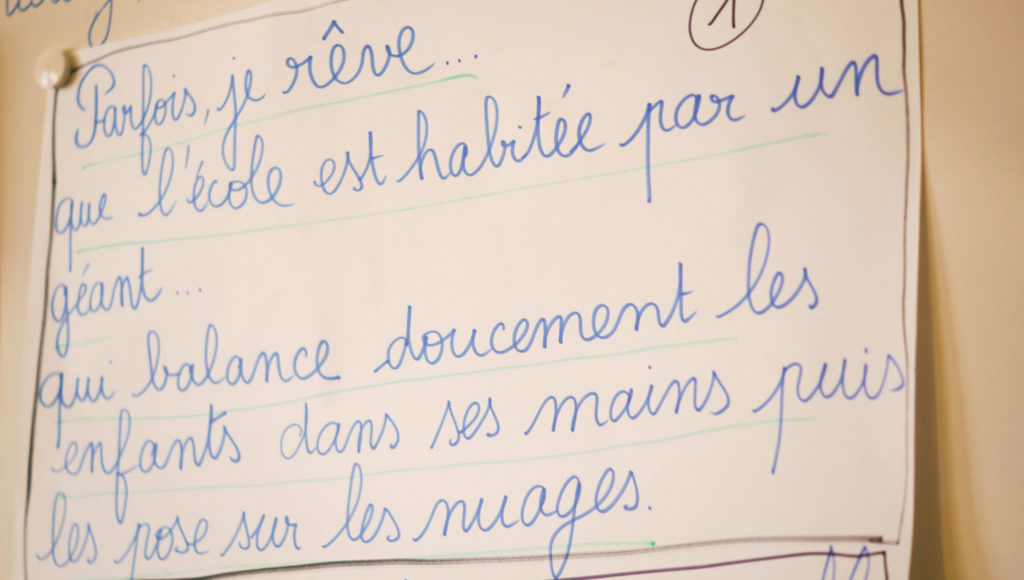 1
Parfois, je rêve...
que l'école est habitée par un
géant...
qui balance doucement les
enfants dans ses mains puis
les pose sur les nuages.